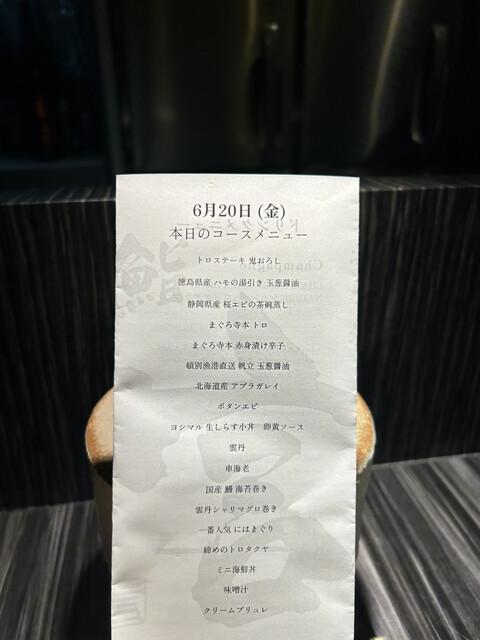 6月20日 (金)
本日のコースメニュー
トロステーキ 鬼おろし
徳島県産 ハモの湯引き 玉葱醤油
静岡県産 桜エビの茶碗蒸し
まぐろ寺本 トロ
まぐろ寺本 赤身漬け辛子
頓別漁港直送 帆立 玉葱醤油
北海道産 アブラガレイ
ボタンエビ
ヨシマル 生しらす小丼 卵黄ソース
雲丹
車海老
国産 鰻 海苔巻き
雲丹シャリマグロ巻き
一番人気 にはまぐり
締めのトロタクヤ
ミニ海鮮丼
味噌汁
クリームブリュレ